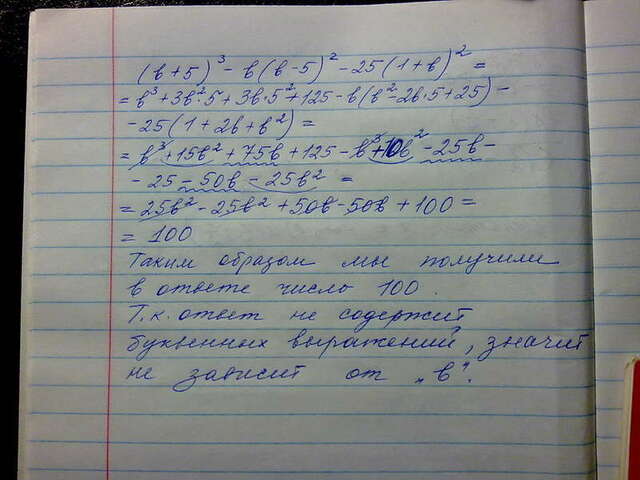 (в+5)³-в(в-5)²-25(1+в)²=
=в³+3в²·5+3в·5²+125-в(в²-2в·5+25)-
-25(1+2в+в²)=
=в³+15в²+75в+125-в³+10в²-25в-
-25-50в-25в²=
=25в²-25в²+50в-50в+100=
=100
Таким образом мы получили
в ответе число 100.
Т.к. ответ не содержит
буквенных выражений, значит
не зависит от „в".